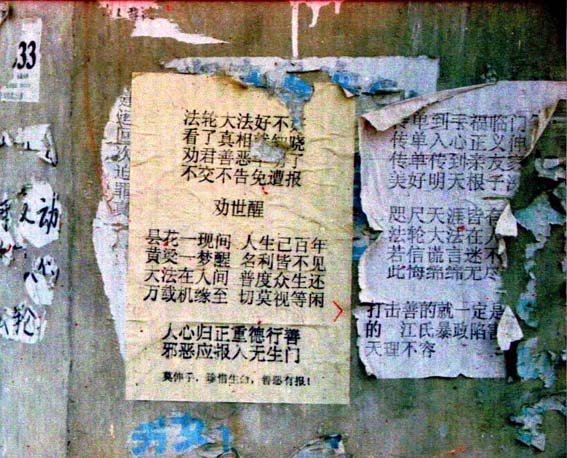 33
法轮大法好不
看了真相 晓
劝君善恶 了
不交不告免遭报
劝世醒
昙花一现间 人生已百年
黄粱一梦醒 名利皆不见
大法在人间 普度众生还
万载机缘至 切莫视等闲
人心归正重德行善
邪恶应报入无生门
莫伸手，珍惜生命，善恶有报！
传单到手福临门
传单入心正义伸
传单传到亲友家
美好明天根子
咫尺天涯皆有
法轮大法在人
若信谎言迷不
此悔绵绵无尽
打击善的就一定是
的 江氏暴政陷害
天理不容
动
轮